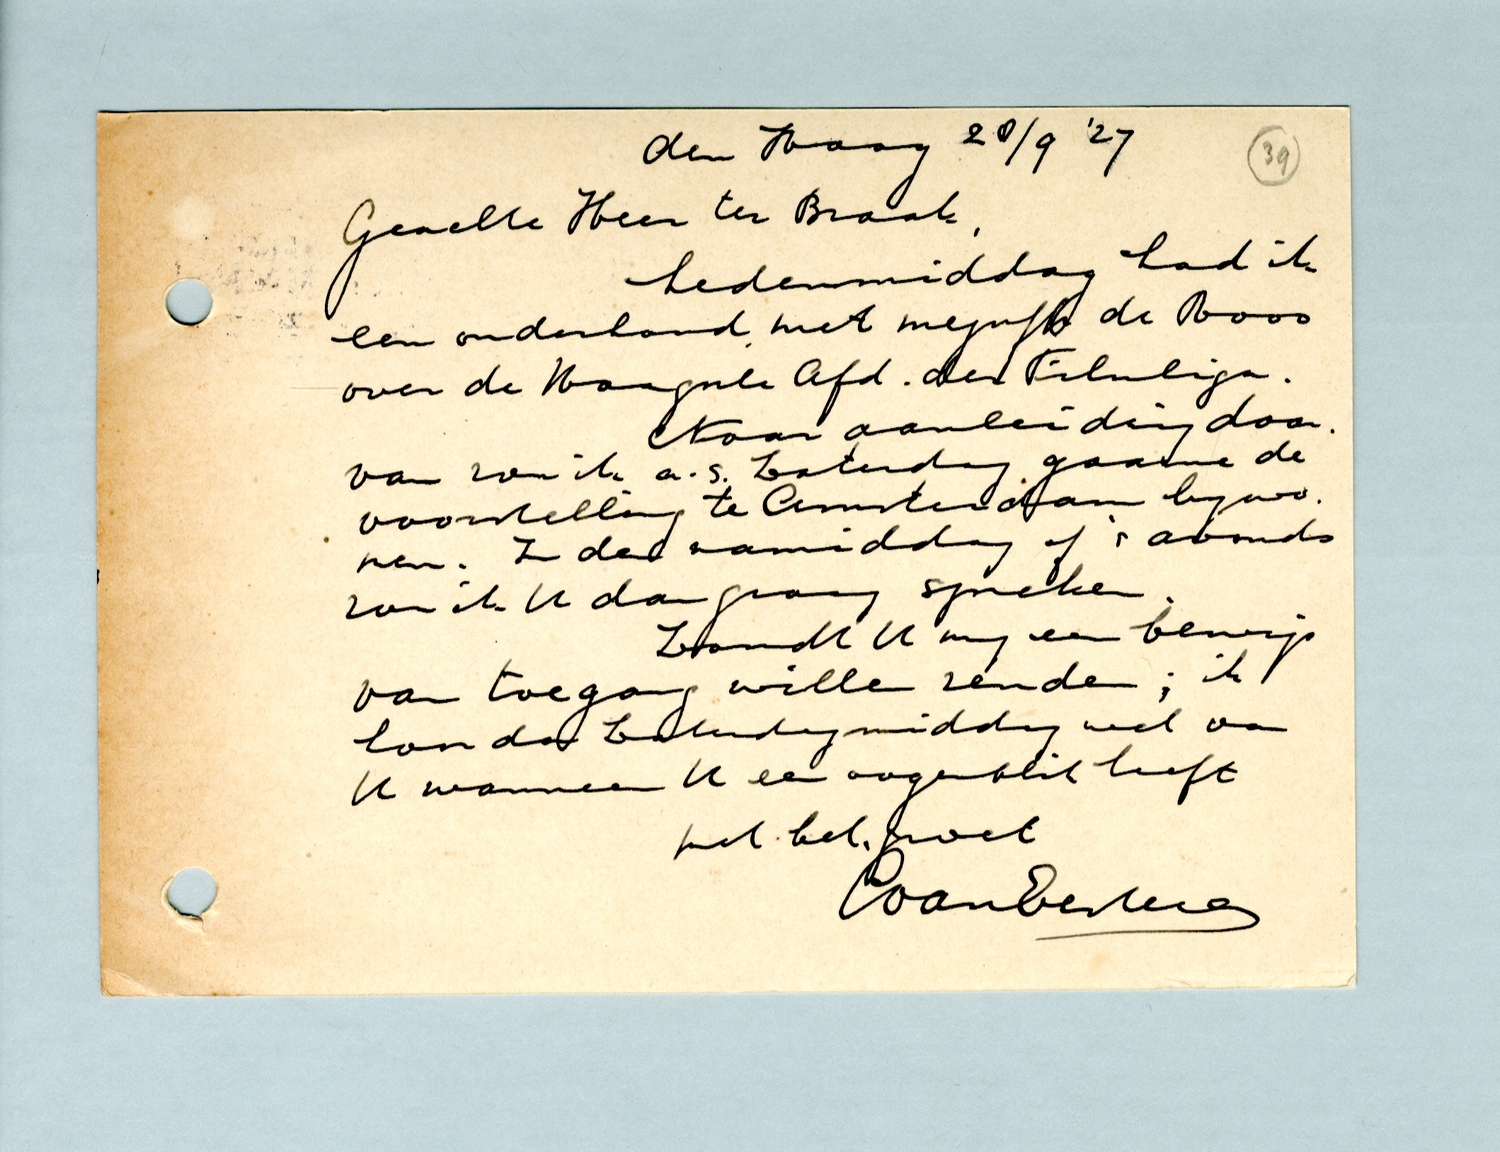 den Haag 28/9 '27
39
Geachte Heer ter Braak,
hedenmiddag had ik
een onderhoud met mejuffr de Roos
over de Haagsche Afd. der Filmliga.
Naar aanleiding daar-
van zou ik a.s. Zaterdag gaarne de
voorstelling te Amsterdam bijwo-
nen. In den namiddag of 's avonds
zou ik U dan graag spreken.
Zoudt U mij een bewijs
van toegang willen zenden; ik
hoor dan Zaterdagmiddag wel van
U wanneer U een oogenblik heeft
met bel. groet